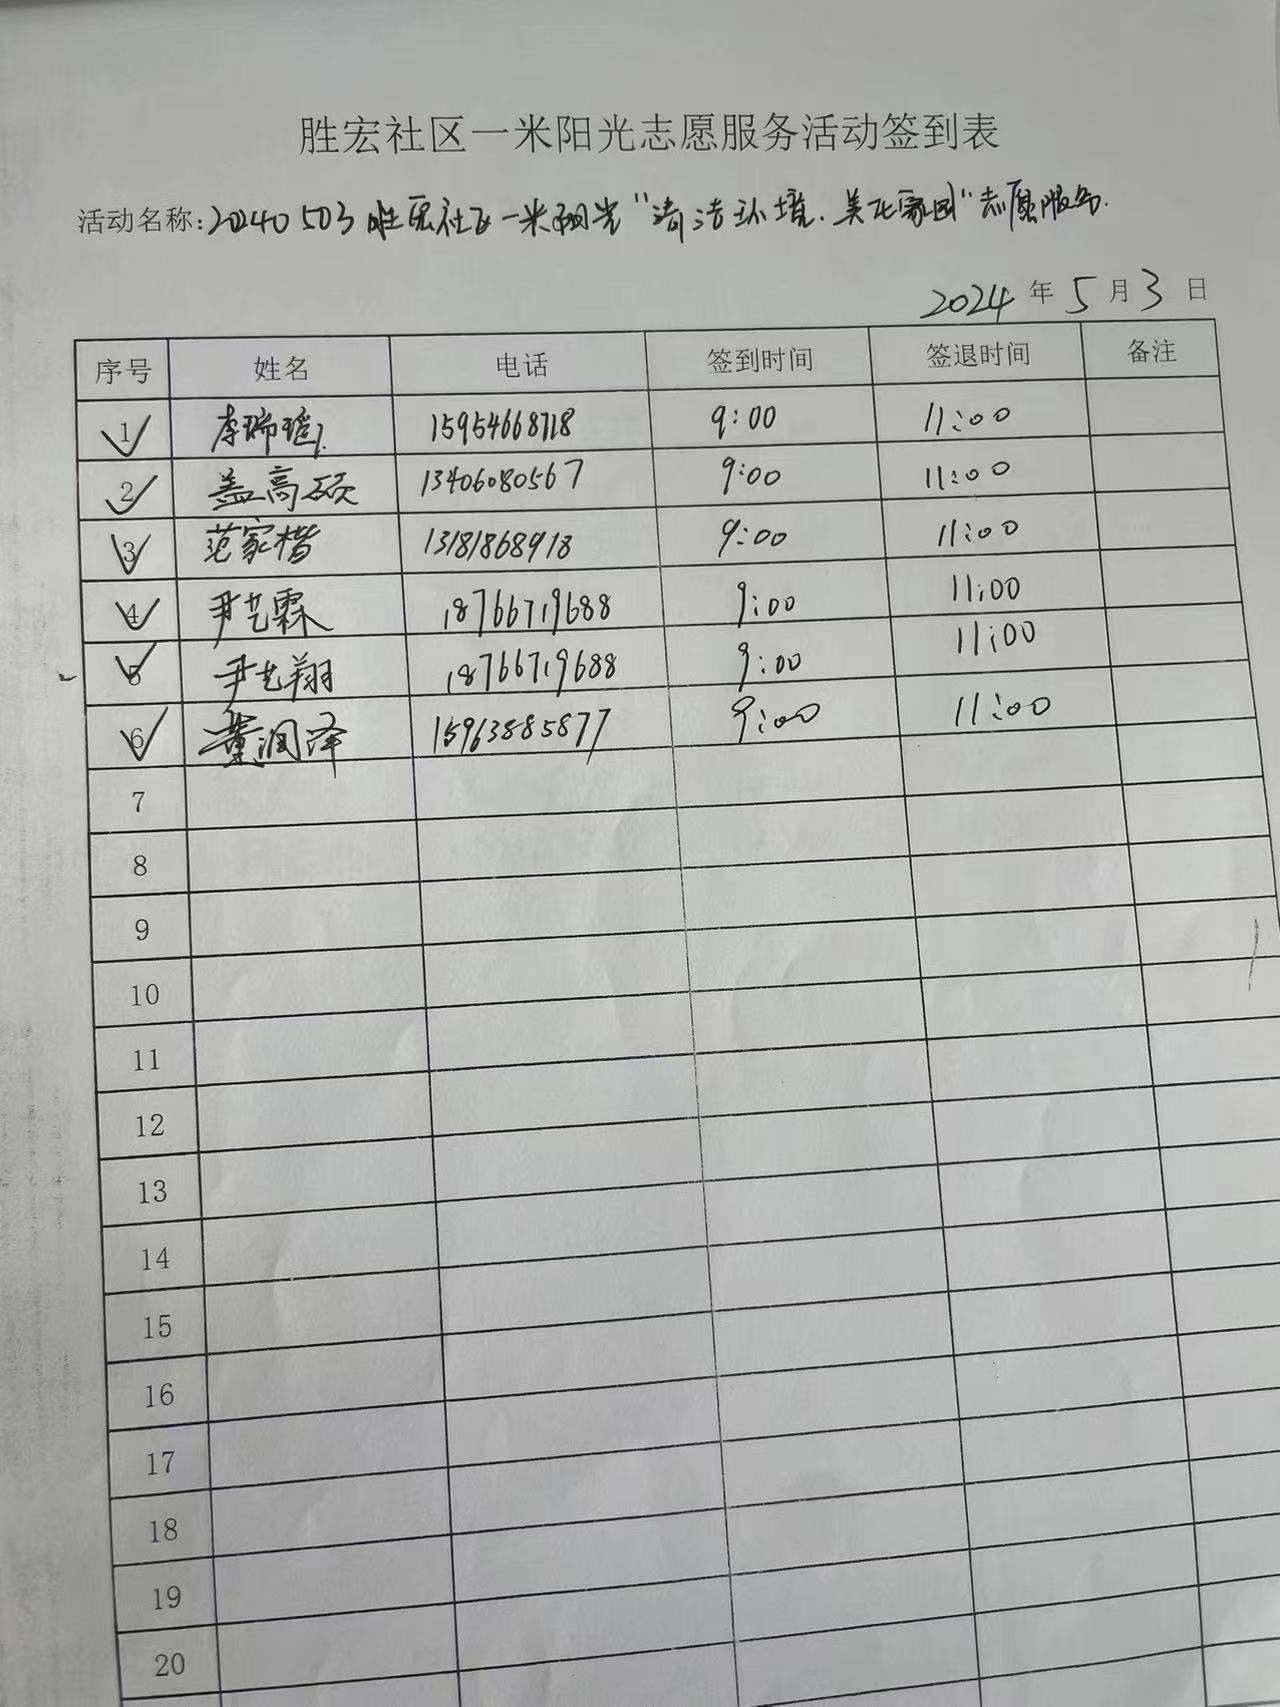 胜宏社区一米阳光志愿服务活动签到表
活动名称:20240503胜宏社区一米阳光“清洁环境.美化家园”志愿服务.
2024年5月3日
序号 姓名 电话 签到时间 签退时间 备注
1 李瑞瑶 15954668718 9:00 11:00
2 盖高硕 13406080567 9:00 11:00
3 范家楷 13181868918 9:00 11:00
4 尹艺霖 18766719688 9:00 11:00
5 尹艺翔 18766719688 9:00 11:00
6 董润泽 15963885877 9:00 11:00
7
8
9
10
11
12
13
14
15
16
17
18
19
20